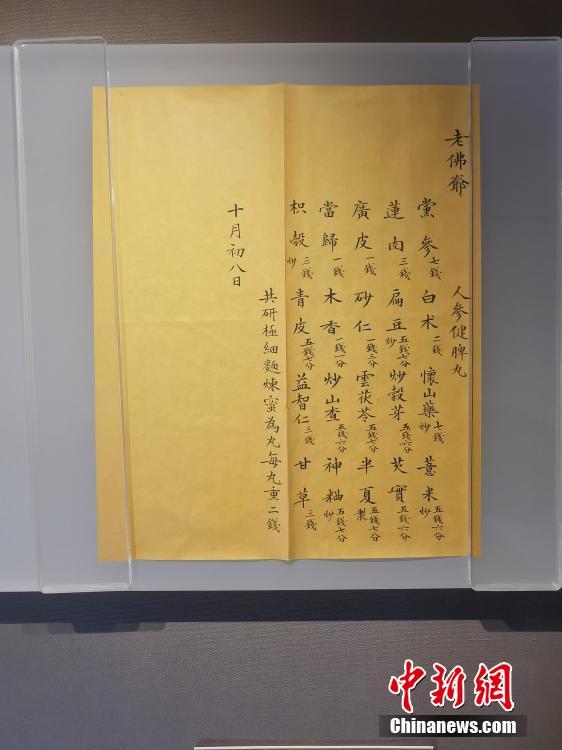 老佛爺 人參健脾丸
黨參七錢 白术二錢 懷山藥炒七錢 薏米炒五錢六分
蓮肉三錢 扁豆炒五錢七分 炒穀芽五錢六分 芡實五錢六分
廣皮一錢 砂仁一錢三分 雲茯苓五錢七分 半夏製五錢七分
當歸一錢 木香一錢一分 炒山查五錢六分 神粬炒五錢七分
枳殼炒三錢 青皮五錢七分 益智仁三錢 甘草三錢
共研極細麵煉蜜為丸每丸重二錢
十月初八日
中新網
Chinanews.com